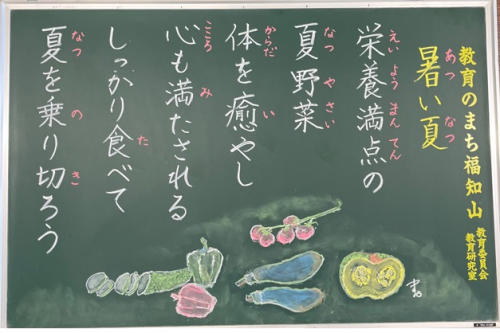 教育のまち福知山
教育委員会
教育研究室
暑い夏
あつ なつ
栄養満点の
えい よう まん てん
夏野菜
なつ やさい
体を癒やし
からだ い
心も満たされる
こころ み
しっかり食べて
た
夏を乗り切ろう
なつ の き